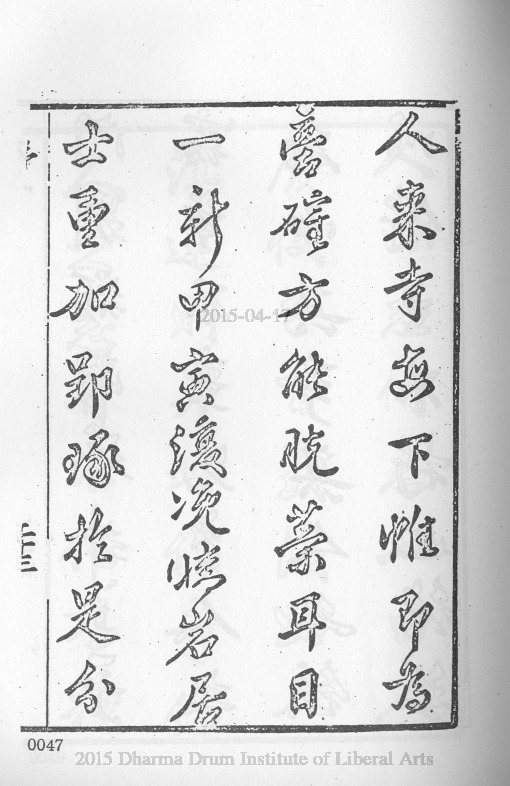 人來寺下帷即為
確方能脫藁耳目
一新甲寅復浼岩居
士重加郢琢於是分
2015-04-17
0047
2015 Dharma Drum Institute of Liberal Arts